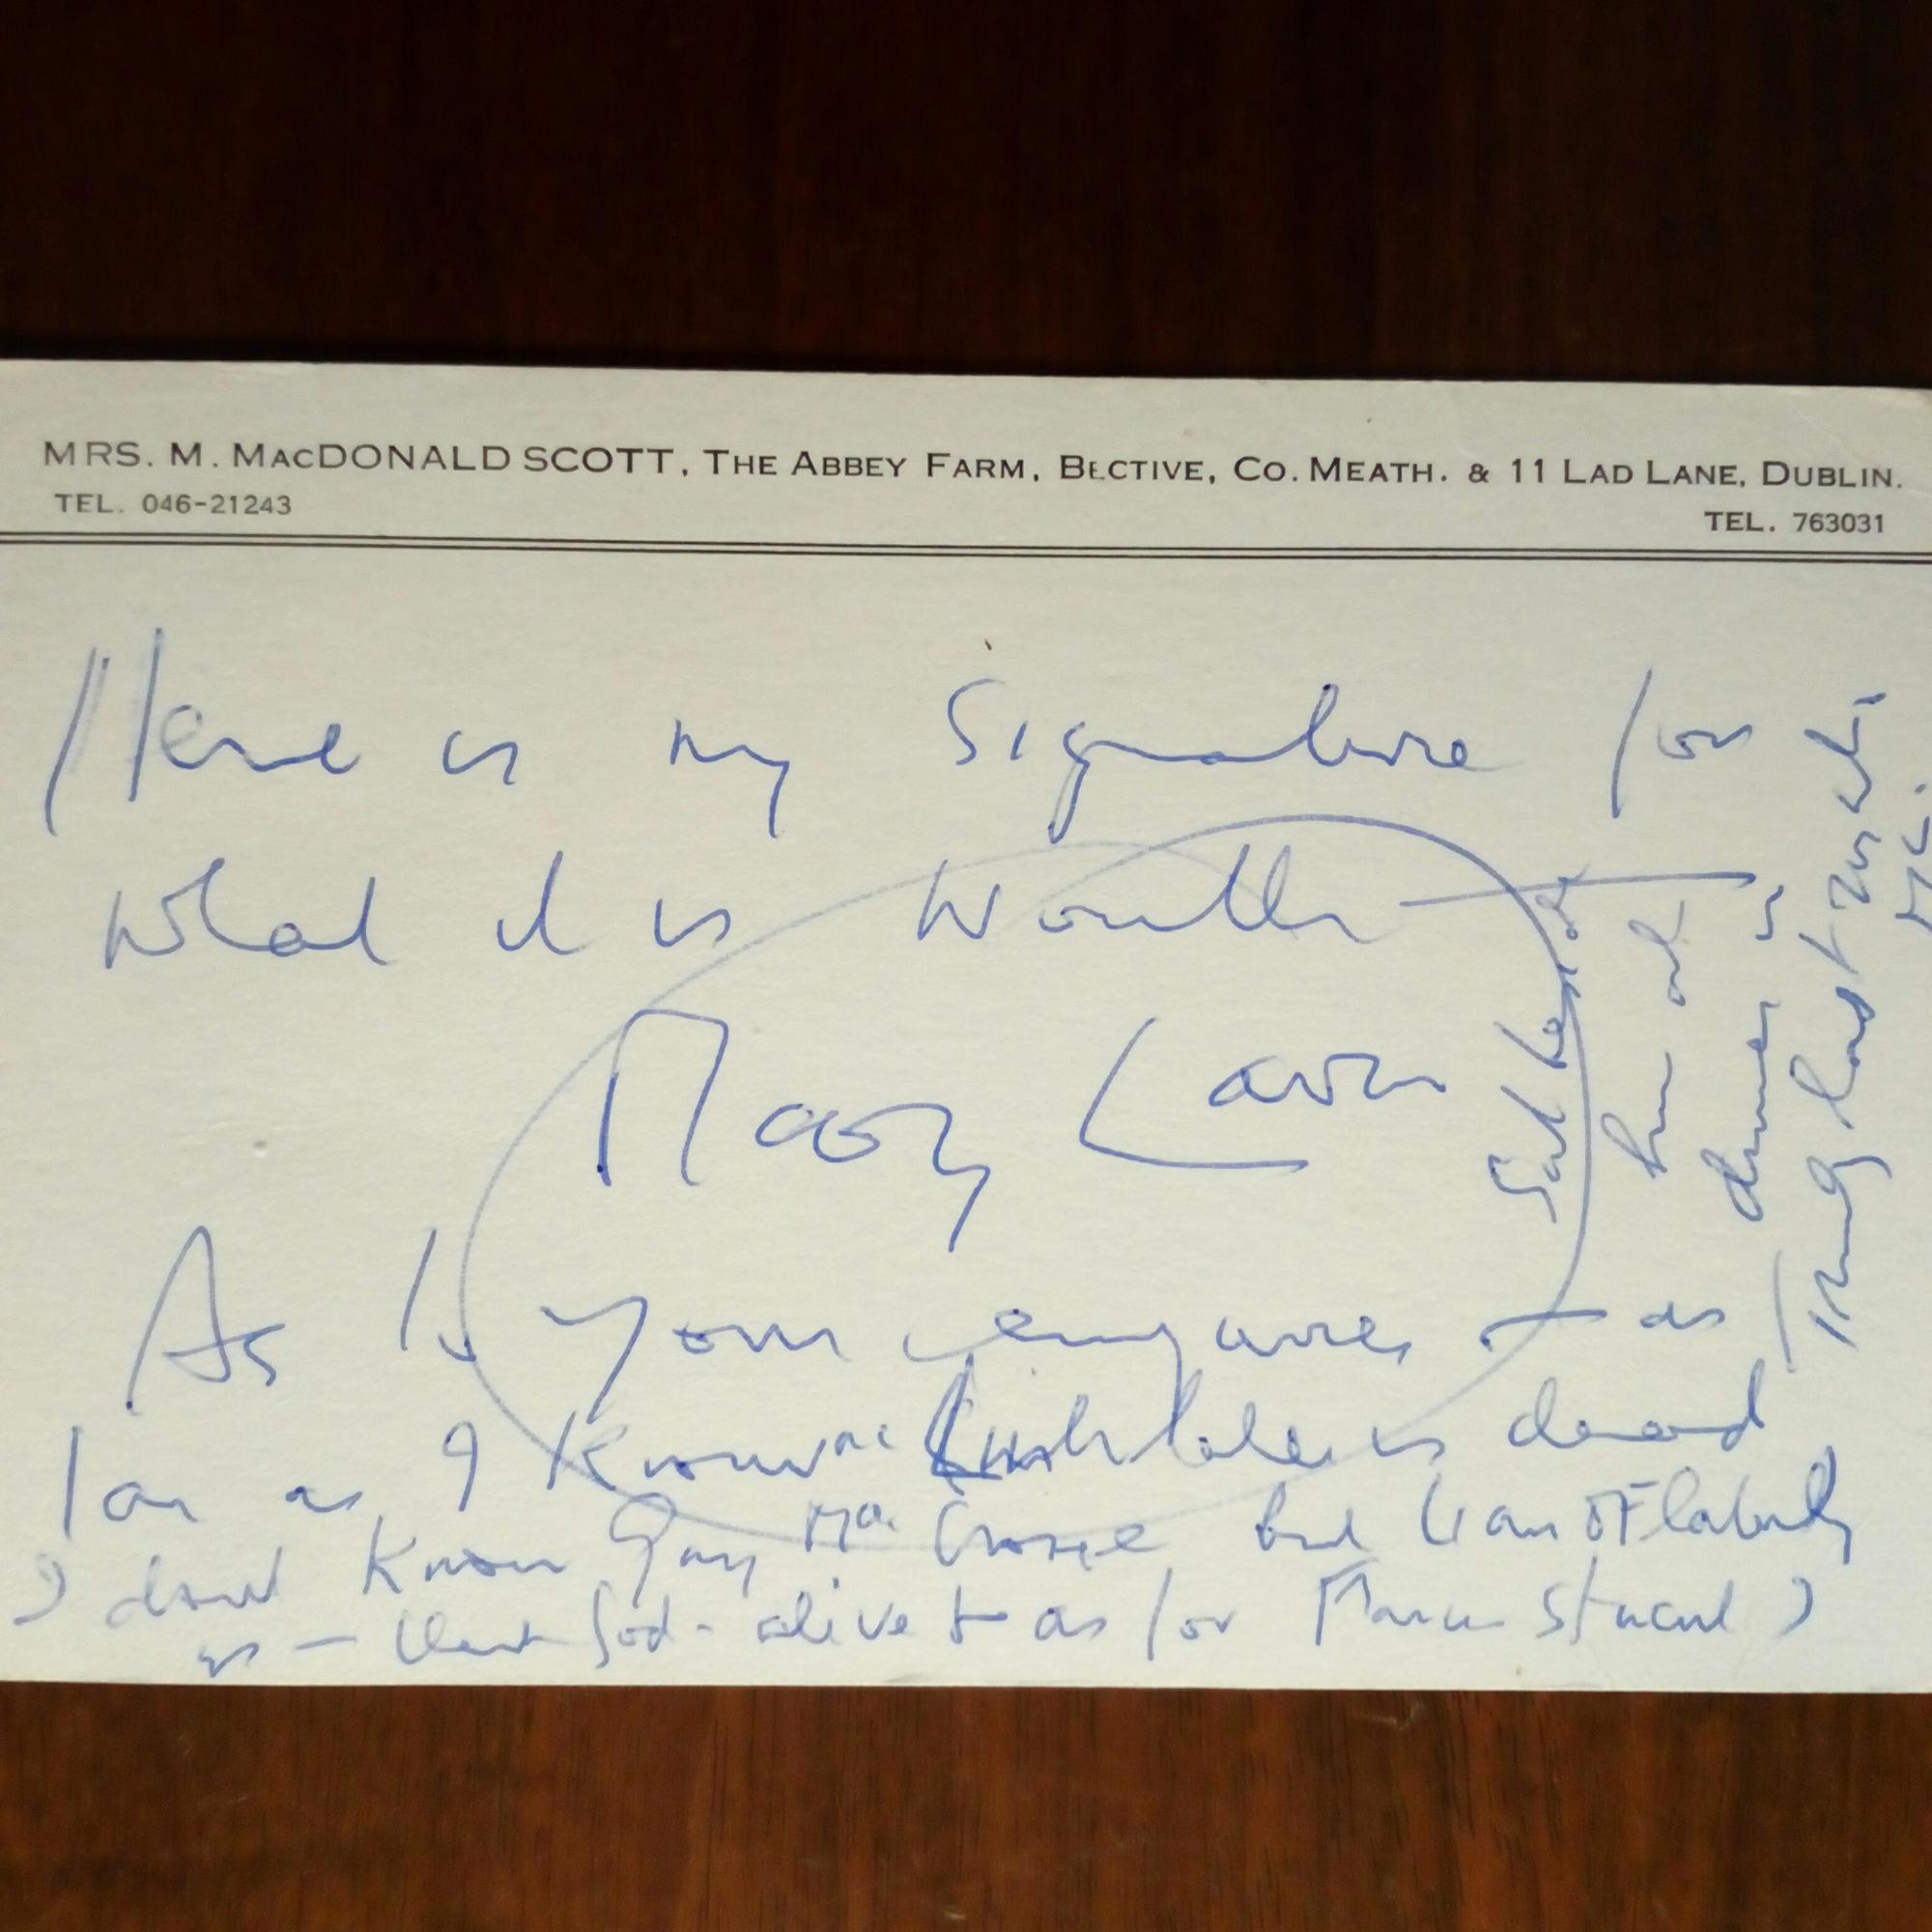 MRS. M. MACDONALD SCOTT, THE ABBEY FARM, BECTIVE, CO. MEATH. & 11 LAD LANE, DUBLIN.
TEL. 046-21243
TEL. 763031
Here is my Signature for
what it is worth —
Mary Lavin
As to your enquires — as
far as I know is dead
I dont know Mac but Liam O'Flaherty
is — thank God - alive & as for Stuart I
Sat beside
him at
dinner